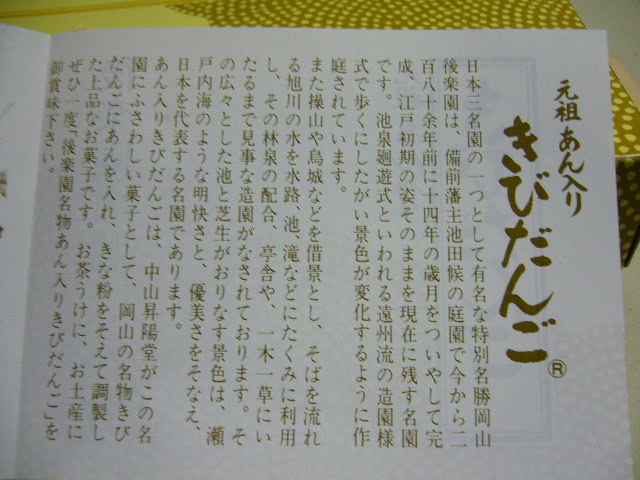 元祖 あん入り
きびだんご®
日本三名園の一つとして有名な特別名勝岡山
後楽園は、備前藩主池田候の庭園で今から二
百八十余年前に十四年の歳月をついやして完
成、江戸初期の姿そのままを現在に残す名園
です。池泉廻遊式といわれる遠州流の造園様
式で歩くにしたがい景色が変化するように作
庭されています。
また操山や烏城などを借景とし、そばを流れ
る旭川の水を水路、池、滝などにたくみに利用
し、その林泉の配合、亭舎や、一木一草にい
たるまで見事な造園がなされております。そ
の広々とした池と芝生がおりなす景色は、瀬
戸内海のような明快さと、優美さをそなえ、
日本を代表する名園であります。
あん入りきびだんごは、中山昇陽堂がこの名
園にふさわしい菓子として、岡山の名物きび
だんごにあんを入れ、きな粉をそえて調製し
た上品なお菓子です。お茶うけに、お土産に
ぜひ一度「後楽園名物あん入りきびだんご」を
御賞味下さい。